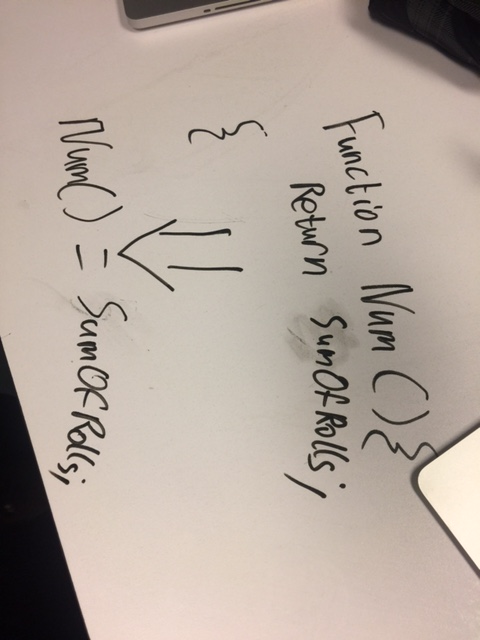 Function Num () {
Return SumOfRolls;
}
Num() = SumOfRolls;